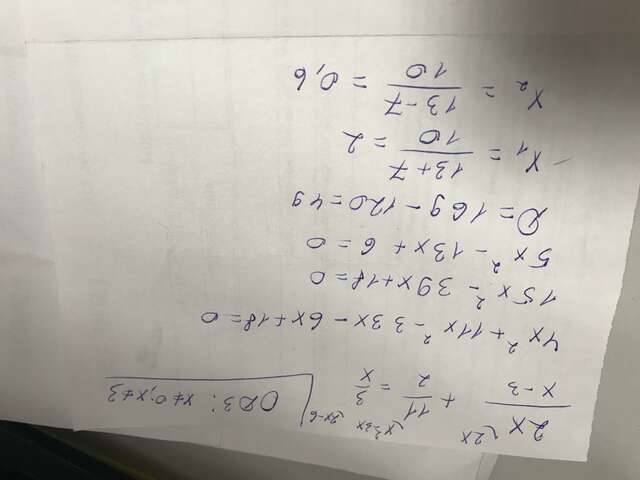 2x/(x-3) ⌊2x + 11/2 ⌊x²-3x = 3/x ⌊2x-6 ОДЗ: x≠0, x≠3
4x² + 11x² - 33x - 6x + 18 = 0
15x² - 39x + 18 = 0
5x² - 13x + 6 = 0
D = 169 - 120 = 49
x₁ = (13+7)/10 = 2
x₂ = (13-7)/10 = 0,6